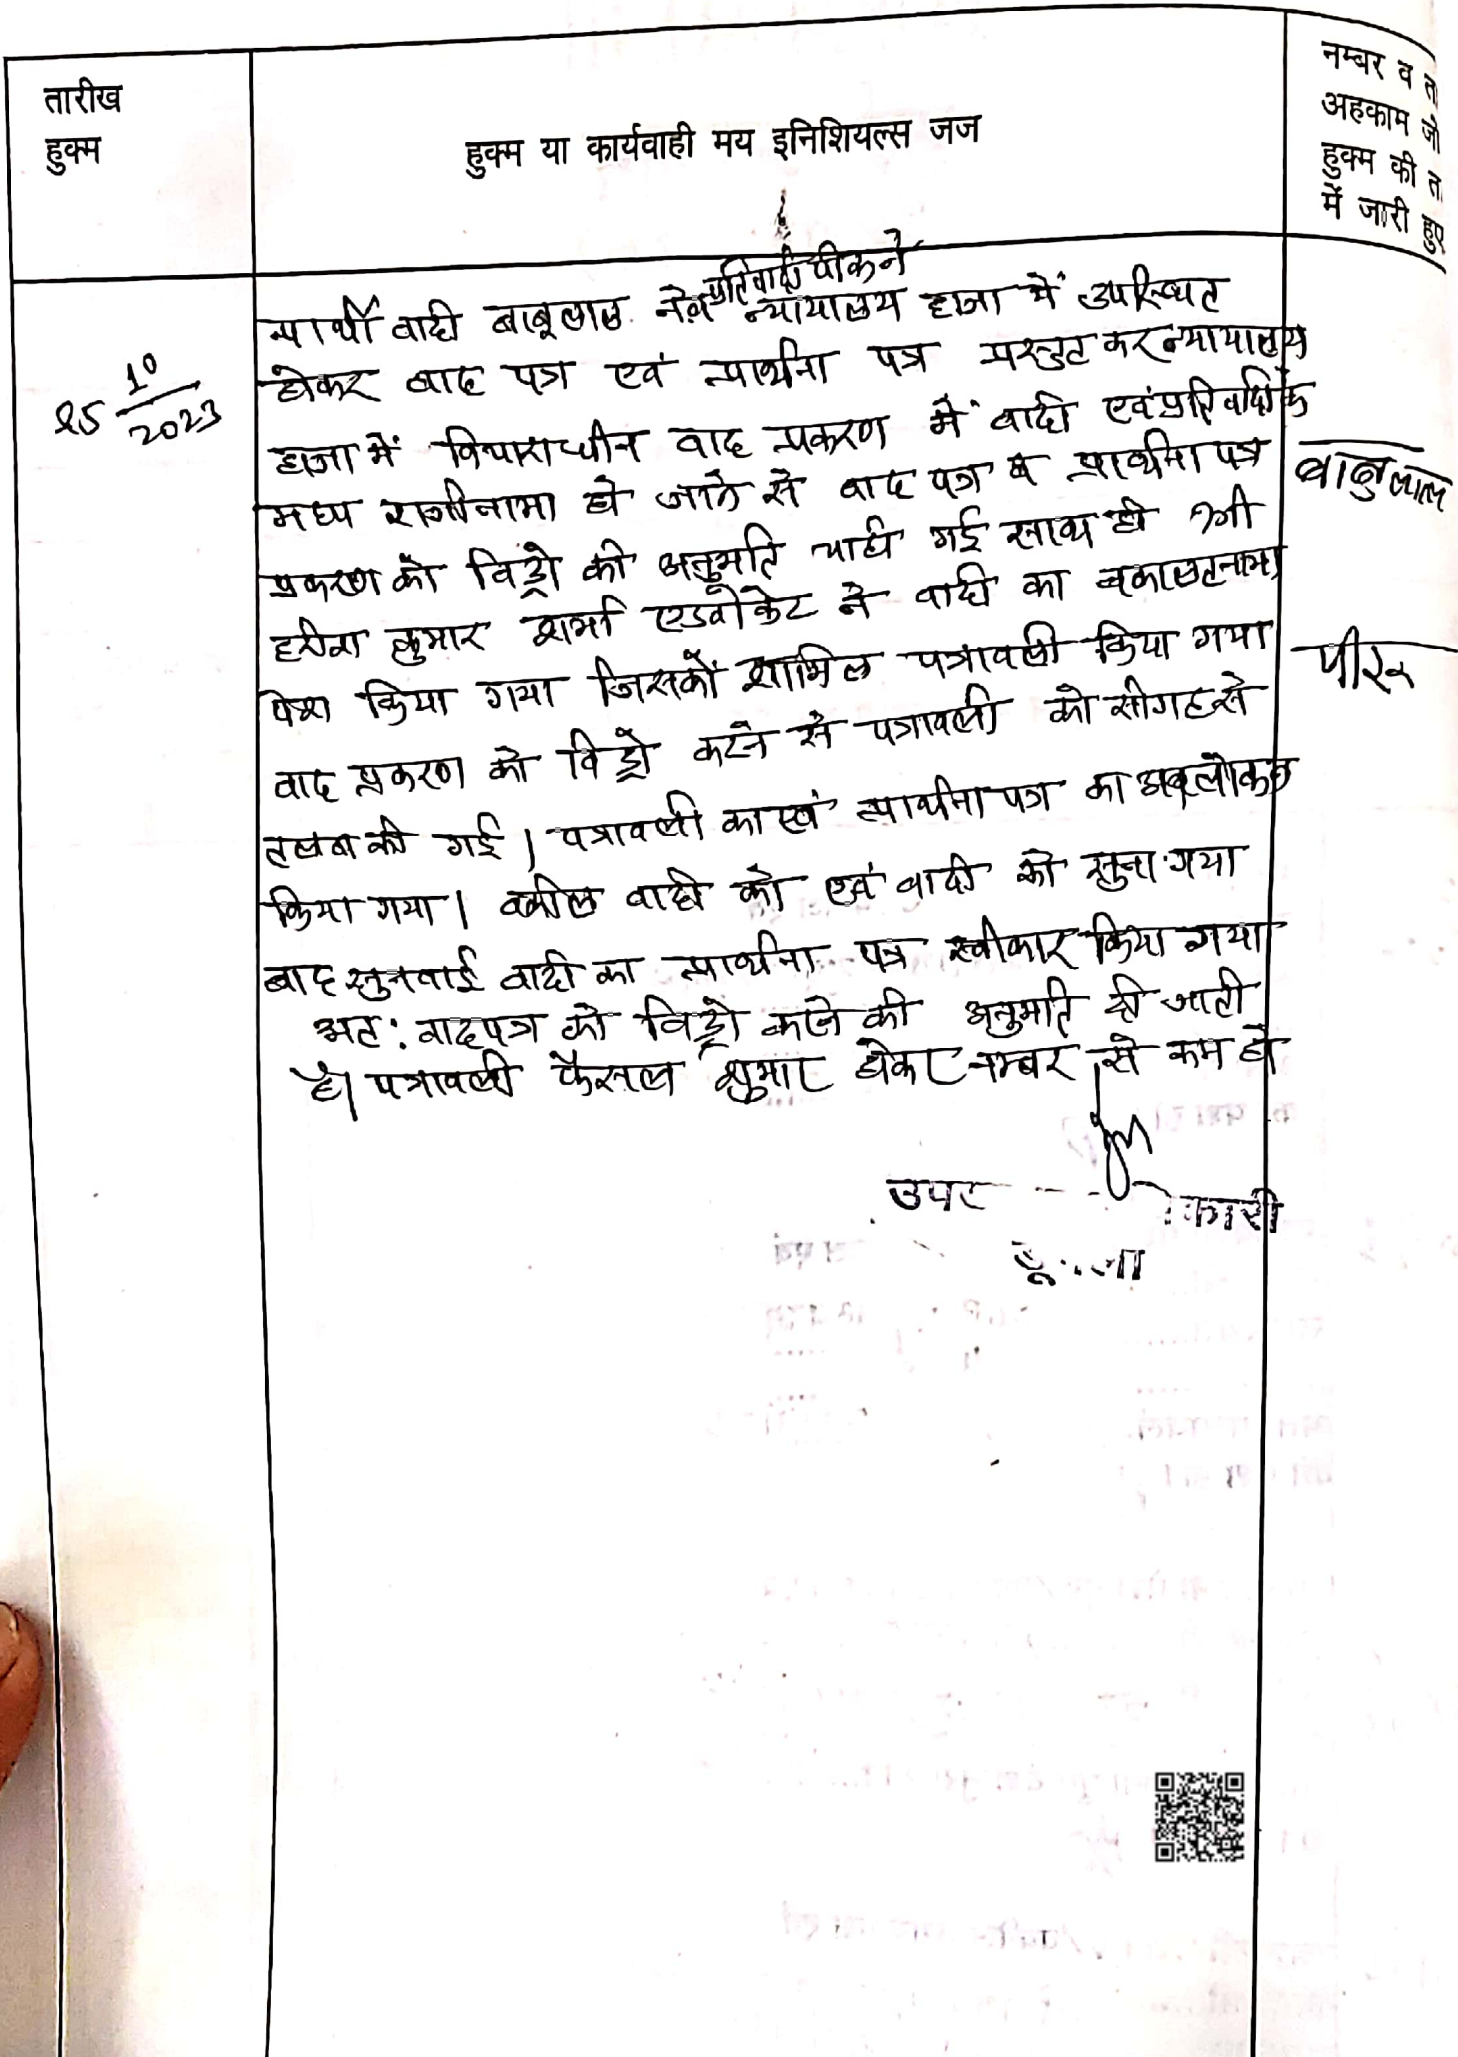 तारीख
हुक्म
हुक्म या कार्यवाही मय इनिशियल्स जज
नम्बर व ता
अहकाम जो
हुक्म की ता
में जारी हुए
25 10/2023
प्रतिवादी पीरूने
प्रार्थी वादी बाबूलाल नेव न्यायालय हाजा में उपस्थित
होकर वाद पत्र एवं प्रार्थना पत्र प्रस्तुत कर न्यायालय
हाजा में विचाराधीन वाद प्रकरण में वादी एवं प्रतिवादी के
मध्य राजीनामा हो जाने से वाद पत्र व प्रार्थना पत्र
प्रकरण को विड्रो की अनुमति चाही गई साथ ही श्री
हरीश कुमार शर्मा एडवोकेट ने वादी का वकालतनामा
पेश किया गया जिसको शामिल पत्रावली किया गया
वाद प्रकरण को विड्रो करने से पत्रावली को सीगह से
तलब की गई। पत्रावली का एवं प्रार्थना पत्र का अवलोकन
किया गया। वकील वादी को एवं वादी को सुना गया
बाद सुनवाई वादी का प्रार्थना पत्र स्वीकार किया गया
अत: वादपत्र को विड्रो करने की अनुमति दी जाती
है। पत्रावली फैसल शुमार होकर नम्बर से कम हो
बाबुलाल
पीरू